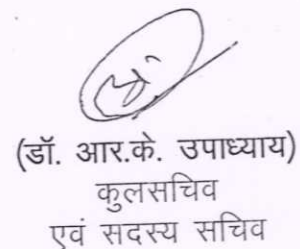 (डॉ. आर.के. उपाध्याय)
कुलसचिव
एवं सदस्य सचिव